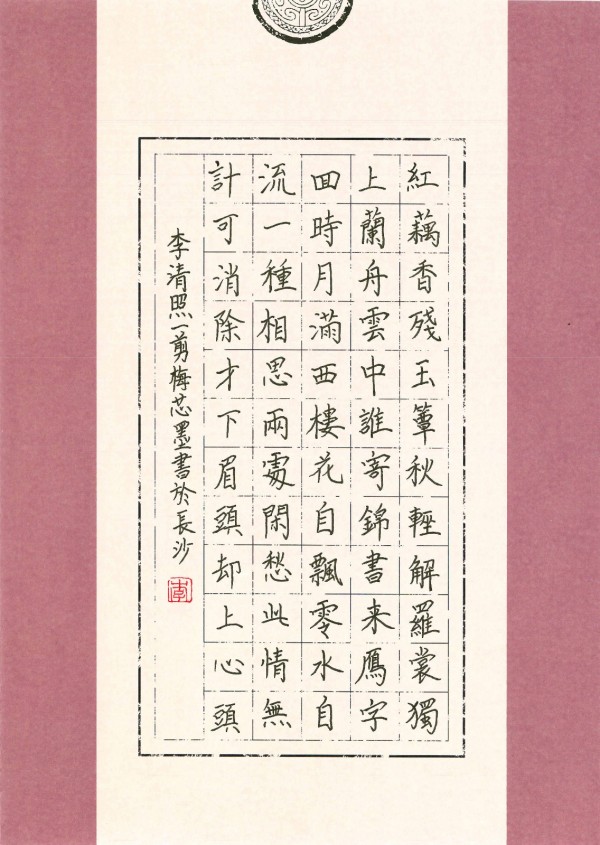 紅藕香殘玉簟秋輕解羅裳獨
上蘭舟雲中誰寄錦書来鴈字
回時月滿西樓花自飄零水自
流一種相思兩處閑愁此情無
計可消除才下眉頭却上心頭
李清照一剪梅芯墨書於長沙
李